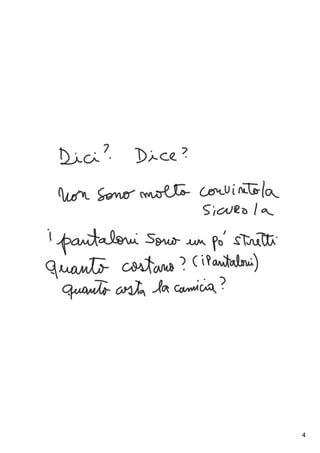 Dici? Dice?
Non sono molto convinto/a
sicuro/a
i pantaloni sono un po' stretti
quanto costano? (i Pantaloni)
quanto costa la camicia?
4